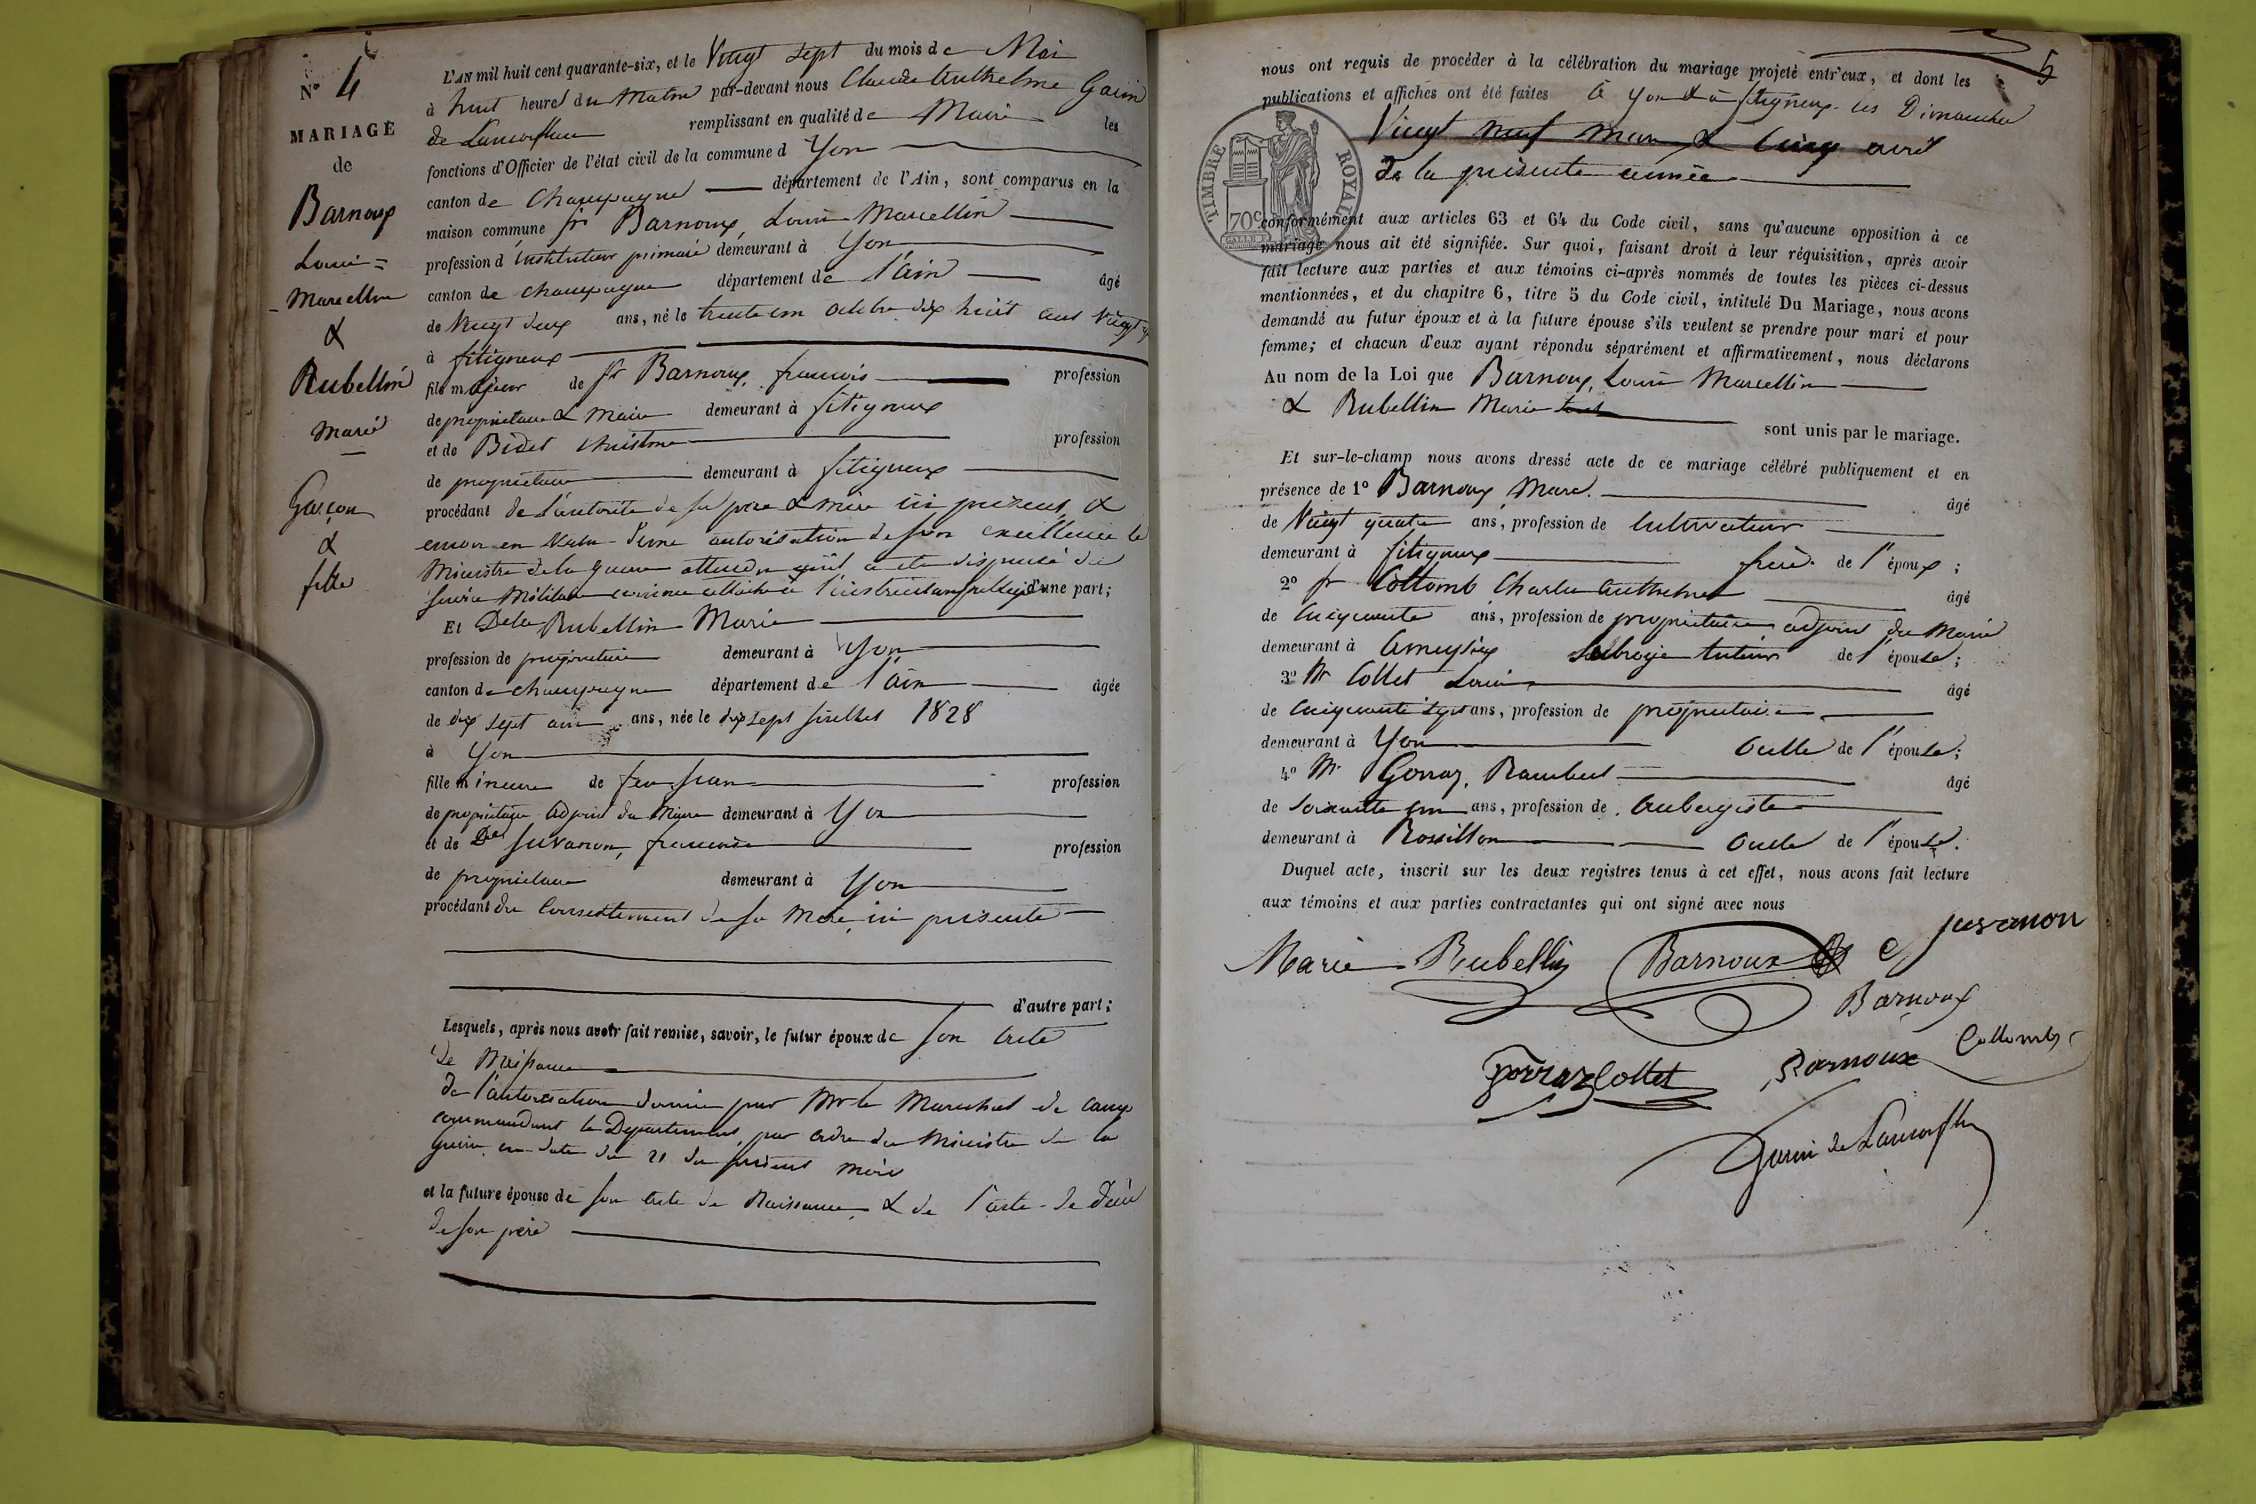 N° 4
MARIAGE
de
Barnoux
Louis =
Marcellin
&
Rubellin
Marie
Garçon
&
fille
L'AN mil huit cent quarante-six, et le Vingt sept du mois de Mai
à huit heures du Matin par-devant nous Claude Anthelme Garin
de Lamorflan remplissant en qualité de Maire les
fonctions d'Officier de l'état civil de la commune d Yon
canton de Champagne département de l'Ain, sont comparus en la
maison commune sr Barnoux, Louis Marcellin
profession d instituteur primaire demeurant à Yon
canton de Champagne département de l'Ain âgé
de Vingt deux ans, né le trente un octobre dix huit cent vingt
à fitigneux
fils majeur de sr Barnoux, francois profession
de propriétaire & Maire demeurant à fitigneux
et de Bidet Christine profession
de propriétaire demeurant à fitigneux
procédant de l'autorité de ses père & mère ici présents, &
encor en vertu d'une autorisation de son excellence le
Ministre de la guerre attendu qu'il a été dispensé du
service Militaire comme attaché à l'instruction publique d'une part;
Et Delle Rubellin Marie
profession de propriétaire demeurant à Yon
canton de champagne département de l'Ain âgée
de dix sept ans ans, née le dix sept juillet 1828
à Yon
fille mineure de feu Jean profession
de propriétaire adjoint du Maire demeurant à Yon
et de De Juvanon, francoise profession
de propriétaire demeurant à Yon
procédant du Consentement de sa Mère, ici présente
d'autre part;
Lesquels, après nous avoir fait remise, savoir, le futur époux de son acte
de Naissance
de l'autorisation donnée par Mr le Maréchal de camp
commandant le Département, par ordre du Ministre de la
guerre, en date du 21 du présent mois
et la future épouse de son acte de Naissance, & de l'acte de Décès
de son père
5
nous ont requis de procéder à la célébration du mariage projeté entr'eux, et dont les
publications et affiches ont été faites à Yon & à fitigneux les Dimanches
Vingt neuf mars & Cinq avril
de la présente année
TIMBRE ROYAL
70c
conformément aux articles 63 et 64 du Code civil, sans qu'aucune opposition à ce
mariage nous ait été signifiée. Sur quoi, faisant droit à leur réquisition, après avoir
fait lecture aux parties et aux témoins ci-après nommés de toutes les pièces ci-dessus
mentionnées, et du chapitre 6, titre 5 du Code civil, intitulé Du Mariage, nous avons
demandé au futur époux et à la future épouse s'ils veulent se prendre pour mari et pour
femme; et chacun d'eux ayant répondu séparément et affirmativement, nous déclarons
Au nom de la Loi que Barnoux, Louis Marcellin
& Rubellin Marie
sont unis par le mariage.
Et sur-le-champ nous avons dressé acte de ce mariage célébré publiquement et en
présence de 1° Barnoux, Marc. âgé
de Vingt quatre ans, profession de Cultivateur
demeurant à fitigneux frère de l'époux;
2° sr Collomb Charles Anthelme âgé
de Cinquante ans, profession de propriétaire adjoint du Maire
demeurant à Ameyzieu Subrogé tuteur de l'épouse;
3° Mr Collet Louis âgé
de Cinquante sept ans, profession de propriétaire
demeurant à Yon Oncle de l'épouse;
4° Mr Gorraz, Rambert âgé
de Soixante un ans, profession de Aubergiste
demeurant à Rossillon Oncle de l'épouse.
Duquel acte, inscrit sur les deux registres tenus à cet effet, nous avons fait lecture
aux témoins et aux parties contractantes qui ont signé avec nous
Marie Rubellin Barnoux Juvanon
Barnoux
gorraz Collet Barnoux Collomb
Garin de Lamorflan